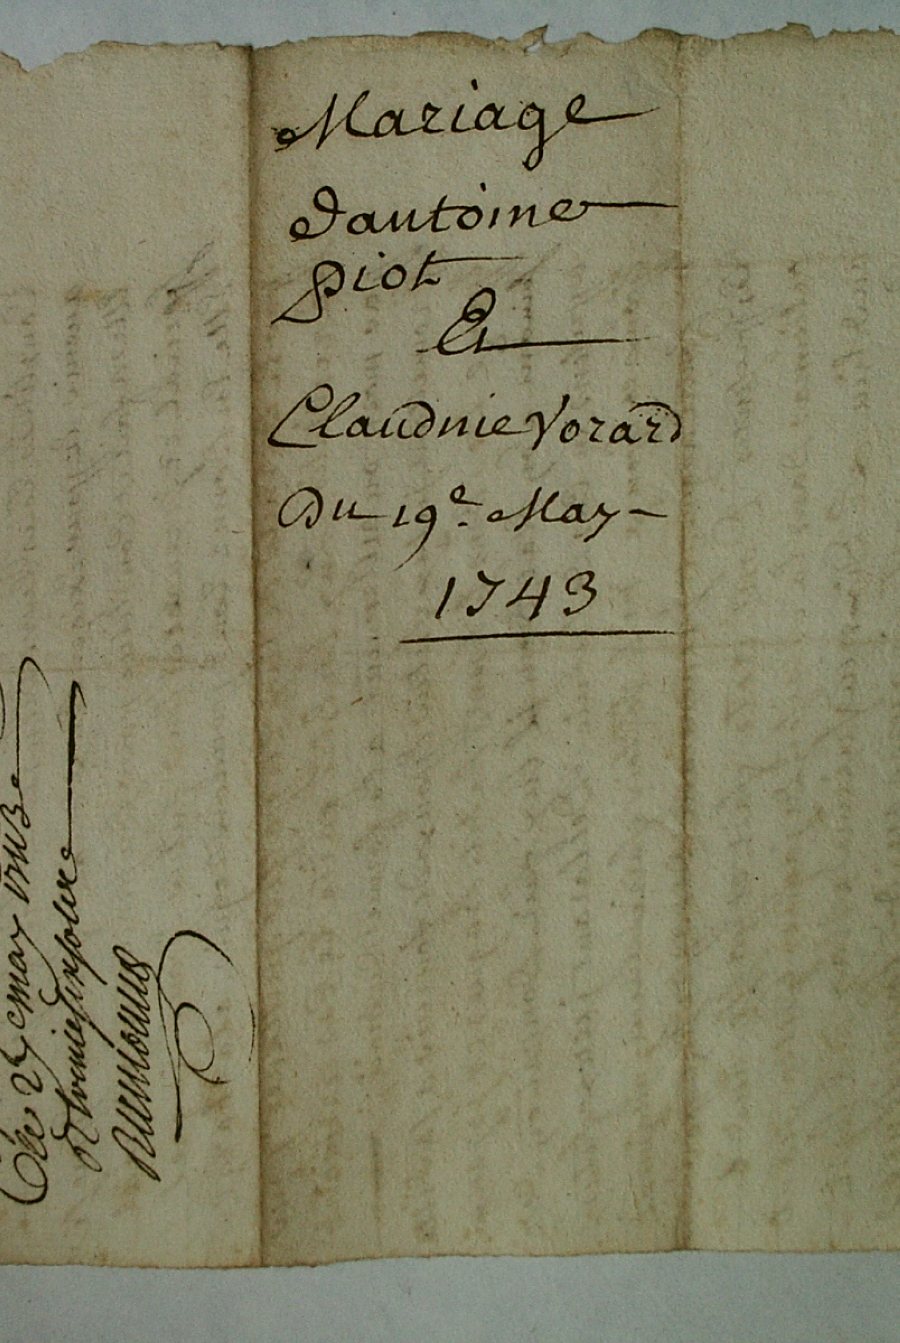 Mariage
dantoine
piot
Et
Claudnie Vorard
Du 19e. May
1743
may 1743